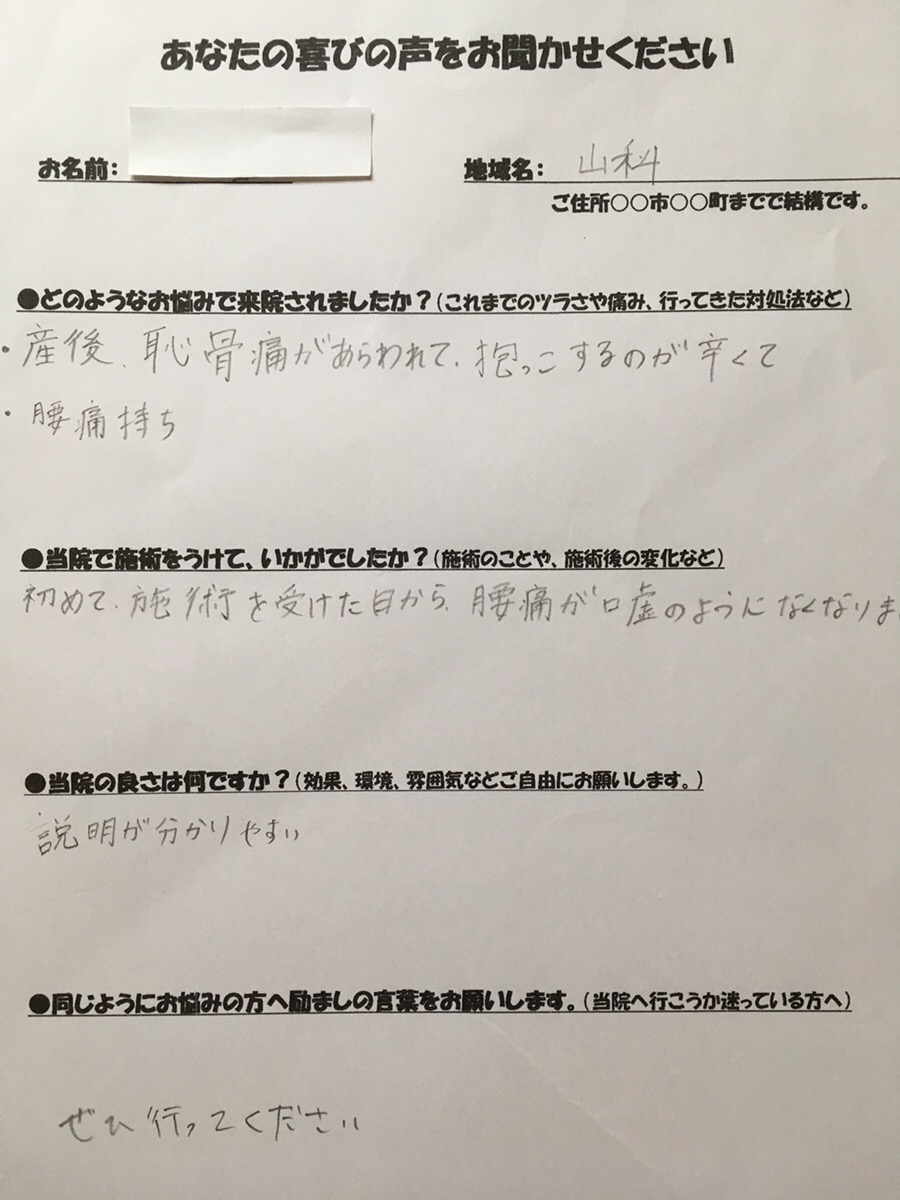 あなたの喜びの声をお聞かせください
お名前: 地域名: 山科
ご住所○○市○○町までで結構です。
●どのようなお悩みで来院されましたか?(これまでのツラさや痛み、行ってきた対処法など)
・産後、恥骨痛があらわれて、抱っこするのが辛くて
・腰痛持ち
●当院で施術をうけて、いかがでしたか?(施術のことや、施術後の変化など)
初めて、施術を受けた日から、腰痛が嘘のようになくなりま
●当院の良さは何ですか?(効果、環境、雰囲気などご自由にお願いします。)
説明が分かりやすい
●同じようにお悩みの方へ励ましの言葉をお願いします。(当院へ行こうか迷っている方へ)
ぜひ行ってください